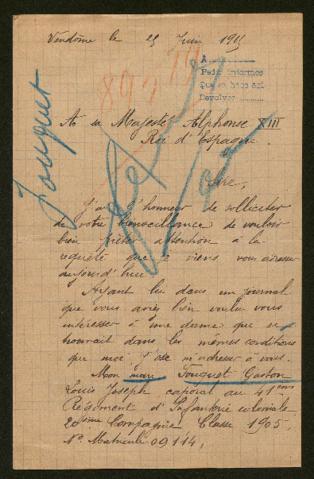 Vendôme le 25 Juin 1915
A
Pedir informes
Devolver
Jouquet
A sa Majesté Alphonse XIII
Roi d'Espagne.
Sire,
J'ai l'honneur de solliciter
de votre bienveillance de vouloir
bien prêter attention à la
requête que je viens vous adresser
aujourd'hui.
Ayant lu dans un journal
que vous aviez bien voulu vous
intéresser à une dame que se
trouvait dans les mêmes conditions
que moi j'ose m'adresser à vous.
Mon mari Jouquet Gaston
Louis Joseph caporal au 41ème
Régiment d'Infanterie coloniale
28ième Compagnie Classe 1905.
No Matricule 09114,